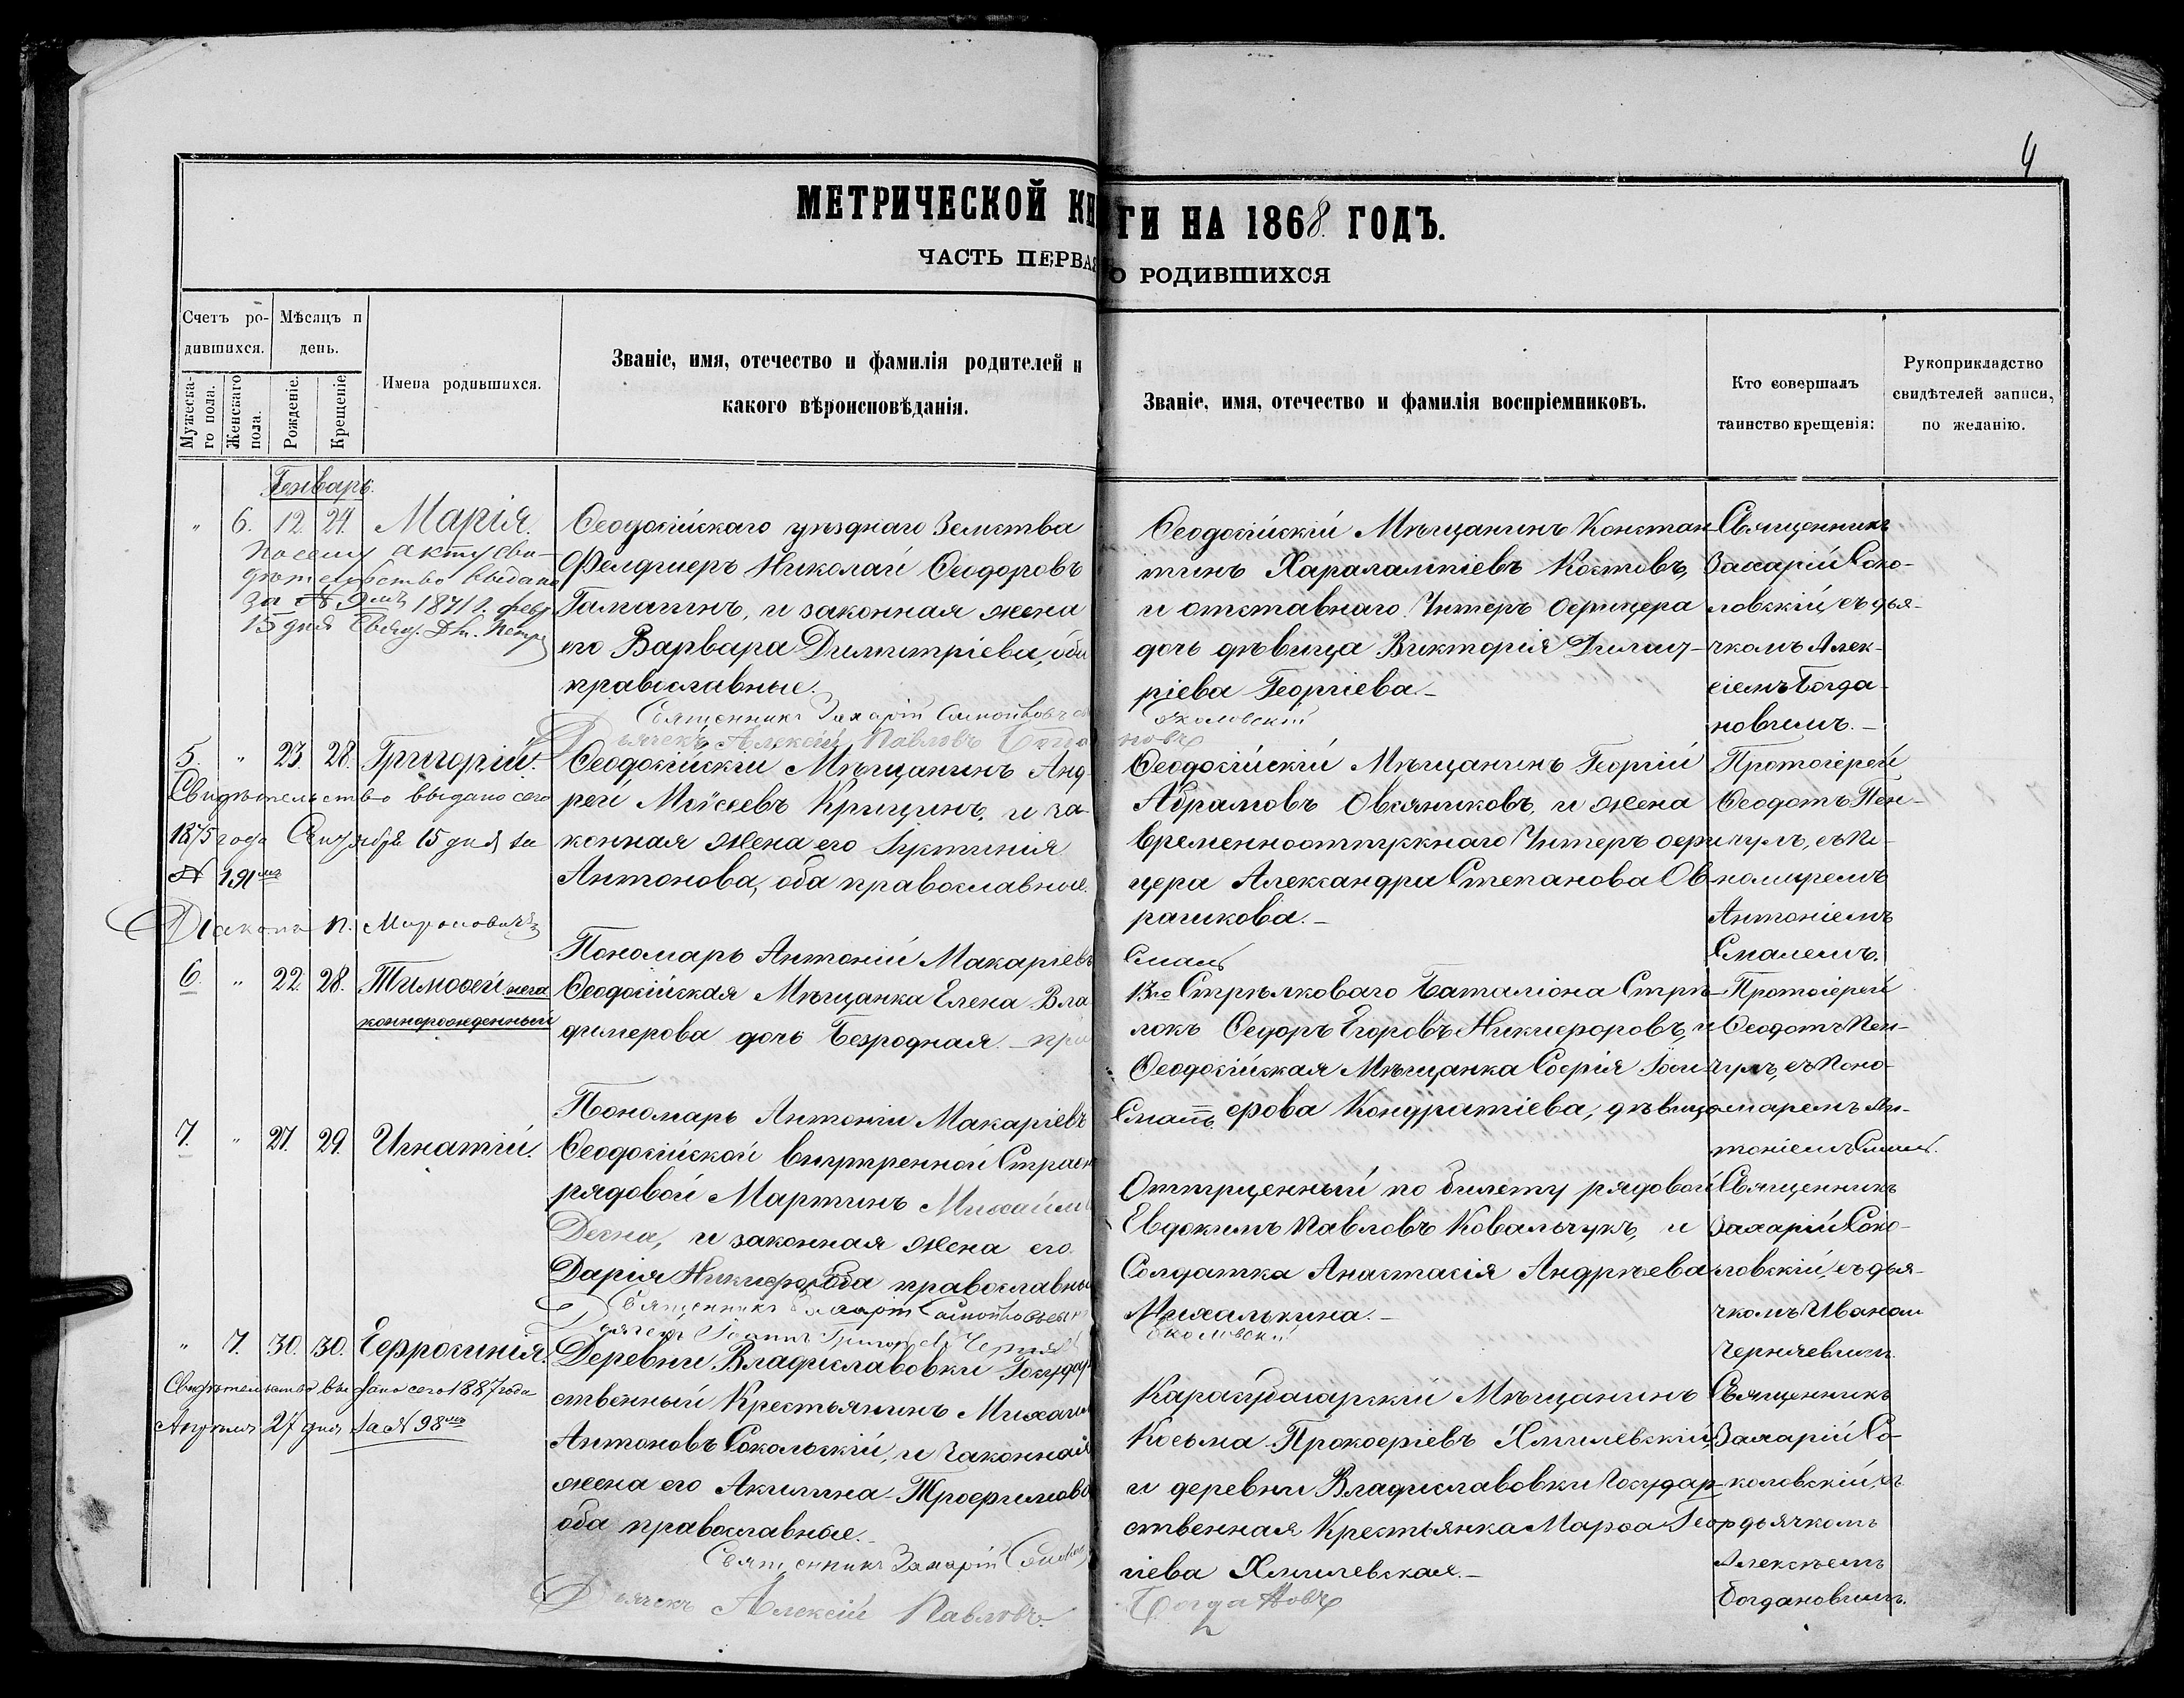 4
МЕТРИЧЕСКОЙ КНИГИ НА 1868 ГОДЪ.
ЧАСТЬ ПЕРВАЯ О РОДИВШИХСЯ
Счетъ ро-
дившихся.
Мужеска-
го пола.
Женскаго
пола.
Мѣсяцъ и
день.
Рожденіе.
Крещеніе
Имена родившихся.
Званіе, имя, отечество и фамилія родителей и
какого вѣроисповѣданія.
Званіе, имя, отечество и фамилія воспріемниковъ.
Кто совершалъ
таинство крещенія:
Рукоприкладство
свидѣтелей записи,
по желанію.
Генварь.
" 6. 12. 24. Марія.
по сему акту сви-
дѣтельство выдано
за № 9мъ 1871 г. февр
13 дня Свящ.
Ѳеодосійскаго уѣзднаго Земства
Фелдшеръ Николай Ѳеодоровъ
и законная жена
его Варвара Димитріева, оба
православные.
Священникъ Захарій
Соколовскій
Дьячекъ Алексій Павловъ Богда
новъ
Ѳеодосійскій Мѣщанинъ Констан
тинъ Харалампіевъ Костовъ,
и отставнаго Унтеръ Офицера
дочь дѣвица Викторія Димит-
ріева Георгіева.-
Священникъ
Захарій Соко-
ловскій, съ дья-
чкомъ Алек-
сіемъ Богда-
новымъ.-
5. " 23. 28. Григорій.
Свидѣтельство выдано сего
1875 года Сентября 15 дня за
№ 191мъ
Діаконъ П. Мироновичъ
Ѳеодосійскій Мѣщанинъ Анд-
рей Моїсеевъ Крицинъ, и за-
конная жена его
Антонова, оба православные.
Пономарь Антоній Макаріевъ
Смаль
Ѳеодосійскій Мѣщанинъ Георгій
Абрамовъ Овсяниковъ, и жена
Временноотпускнаго Унтеръ офи
цера Александра Степанова Ов-
рашкова.-
Протоіерей
Ѳеодотъ Пен-
чулъ, съ По-
номаремъ
Антоніемъ
Смалемъ.
6. " 22. 28. Тимоѳей неза
коннорожденный
Ѳеодосійская Мѣщанка Елена Вла
димерова дочь Безродная. - пра
Пономарь Антоній Макаріевъ
Смаль
13го Стрѣлковаго Баталіона Стрѣ-
локъ Ѳедоръ Егоровъ Никифоровъ, и
Ѳеодосійская Мѣщанка Софія Іоси-
фова Кондратіева, дѣвица
Протоіерей
Ѳеодотъ Пен-
чулъ, съ Поно-
маремъ Ан-
тоніемъ Смаль.
7. " 27. 29. Игнатій.
Ѳеодосійской внутренной Стражи
рядовой Мартинъ Михайлов
Десна, и законная жена его
Дарія Никифорова православные
Священникъ Захарій
Соколовскій
Дьячекъ Іоаннъ Григорьевъ
Отпущенный по билету рядовой
Евдокимъ Павловъ Ковальчукъ, и
Солдатка Анастасія Андрѣева
Михалькина.-
Священникъ
Захарій Соко-
ловскій, съ дья-
чкомъ Иваном
Чернявскимъ
" 7. 30. 30. Евфросинія.
Свидѣтельство выдано сего 1887 года
Апреля 27 дня за № 98мъ
Деревни Владиславовки Государ
ственный Крестьянинъ Михаилъ
Антоновъ Сокольскій, и законная
жена его Акилина Трофимова
оба православные.-
Священникъ Захарій
Дьячекъ Алексій Павловъ
Богдановъ
Карасубазарскій Мѣщанинъ
Косьма Прокофіевъ Хмилевскій,
и деревни Владиславовки Государ-
ственная Крестьянка Марѳа Геор
гіева Хмилевская.-
Священникъ
Захарій Со-
коловскій, съ
дьячкомъ
Алексѣемъ
Богдановымъ.